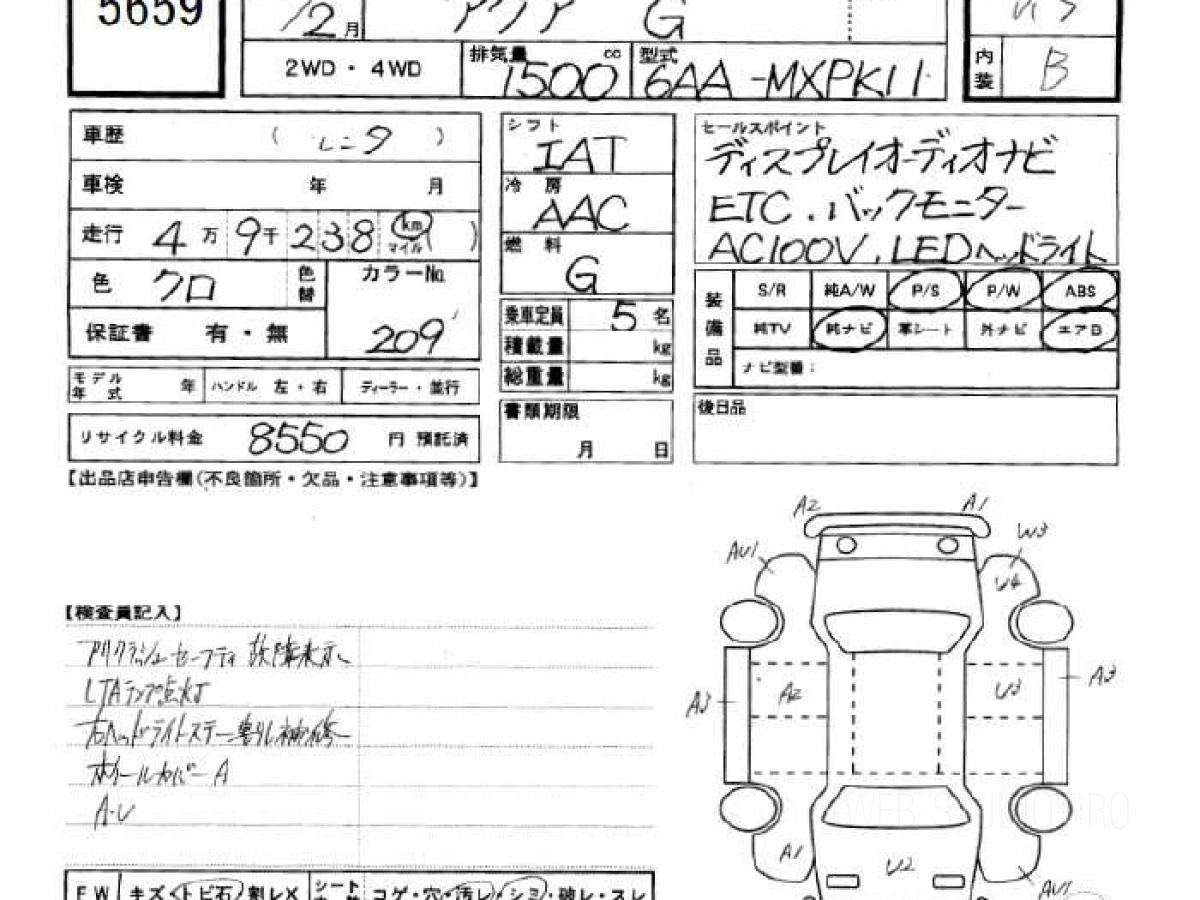 5659
/2月
アクア G
2WD・4WD
排気量 1500 cc
型式 6AA-MXPK11
内装 B
車歴 ( レンタ )
車検 年 月
走行 4万 9千 238 km マイル ( )
色 クロ 色替
カラーNo. 209
保証書 有・無
モデル年式 年 ハンドル 左・右 ディーラー・並行
リサイクル料金 8550 円 預託済
シフト IAT
冷房 AAC
燃料 G
乗車定員 5 名
積載量 kg
総重量 kg
書類期限
月 日
セールスポイント
ディスプレイオーディオナビ
ETC.バックモニター
AC100V.LEDヘッドライト
装備品
S/R 純A/W P/S P/W ABS
純TV 純ナビ 革シート 外ナビ エアB
ナビ型番:
後日品
【出品店申告欄(不良箇所・欠品・注意事項等)】
A2 A1
AU1 W3
U4
A3 A2 U3 A3
A1 U2 AU1
【検査員記入】
プリクラッシュセーフティ 故障表示
LTAランプ点灯
右ヘッドライトステー割れ補修
ホイールカバーA
A・U
WEB-S PRO
FW キズ・トビ石・割レX シート コゲ・穴・汚レ・シミ・破レ・スレ